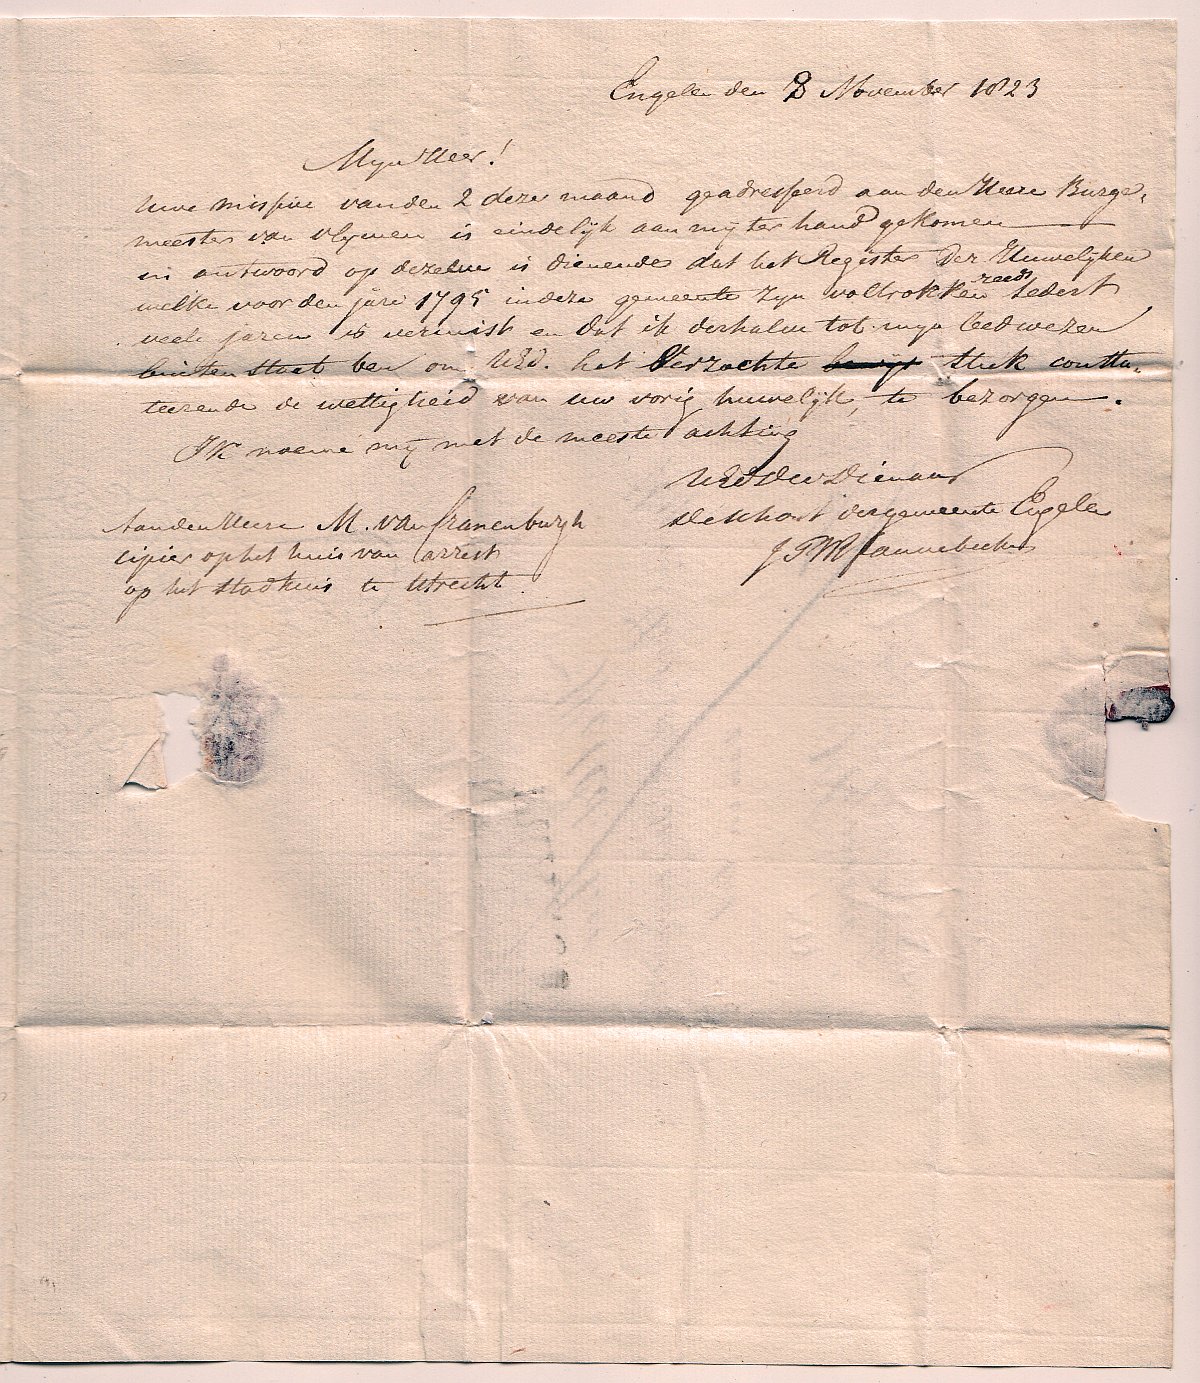 Engelen den 8 November 1823
Mijn Heer!
Uwe missive van den 2 dezer maand geadresseerd aan den Heere Burge-
meester van Vlijmen is eindelijk aan mij ter hand gekomen
in antwoord op dezelve is dienende dat het Register der Huwelijken
welke voor den jare 1795 in deze gemeente zijn voltrokken reeds sedert
veele jaren is vermist en dat ik derhalve tot mijn leedwezen
buiten staat ben om UEd. het verzochte bewijs stuk constta-
teerende de wettigheid van uw vorig huwelijk, te bezorgen.
Ik noeme mij met de meeste achting
UEd Dw Dienaar
de Schout der gemeente Engelen
Aan den Heere M. van Cranenburgh
cipier op het huis van arrest
op het stadhuis te Utrecht.